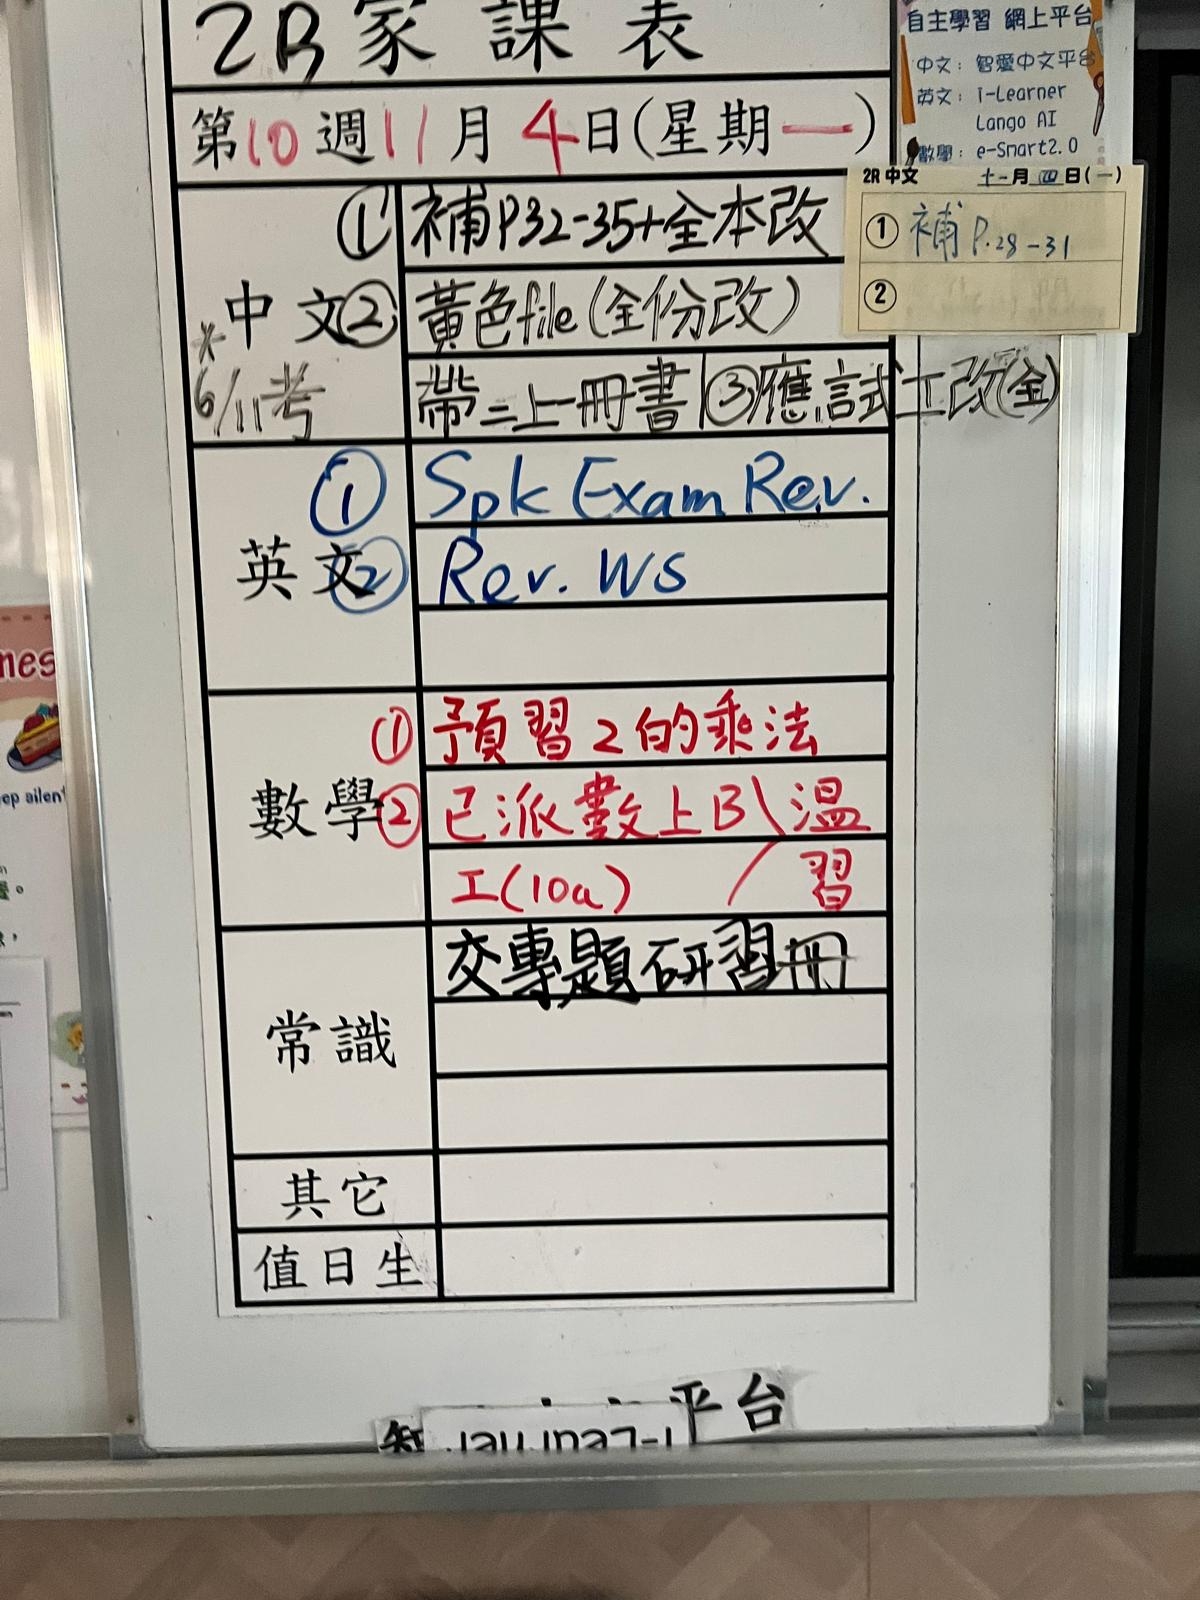 2B 家課表
第10週11月4日(星期一)
中文
*6/11考
① 補P32-35+全本改
② 黃色file(全份改)
帶二上一冊書 ③應試工改(全)
英文
① Spk Exam Rev.
② Rev. WS
數學
① 預習2的乘法
② 已派數上B\溫
工(10a) /習
常識
交專題研習冊
其它
值日生
自主學習 網上平台
中文: 智愛中文平台
英文: i-Learner
Lango AI
數學: e-Smart2.0
2R 中文 十一月四日(一)
① 補P.28-31
②
平台
i-Learner